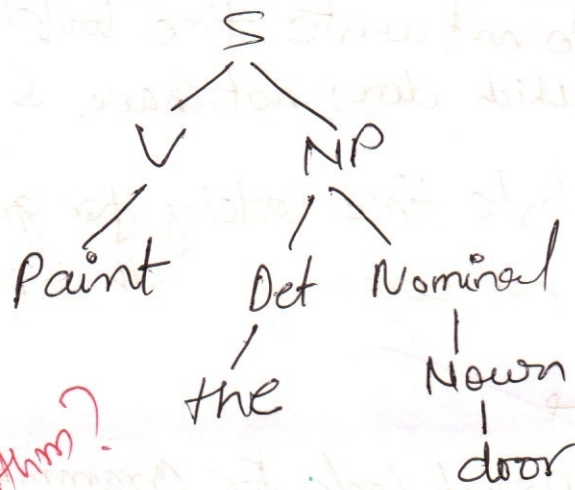 S
V NP
Paint Det Nominal
the Noun
door